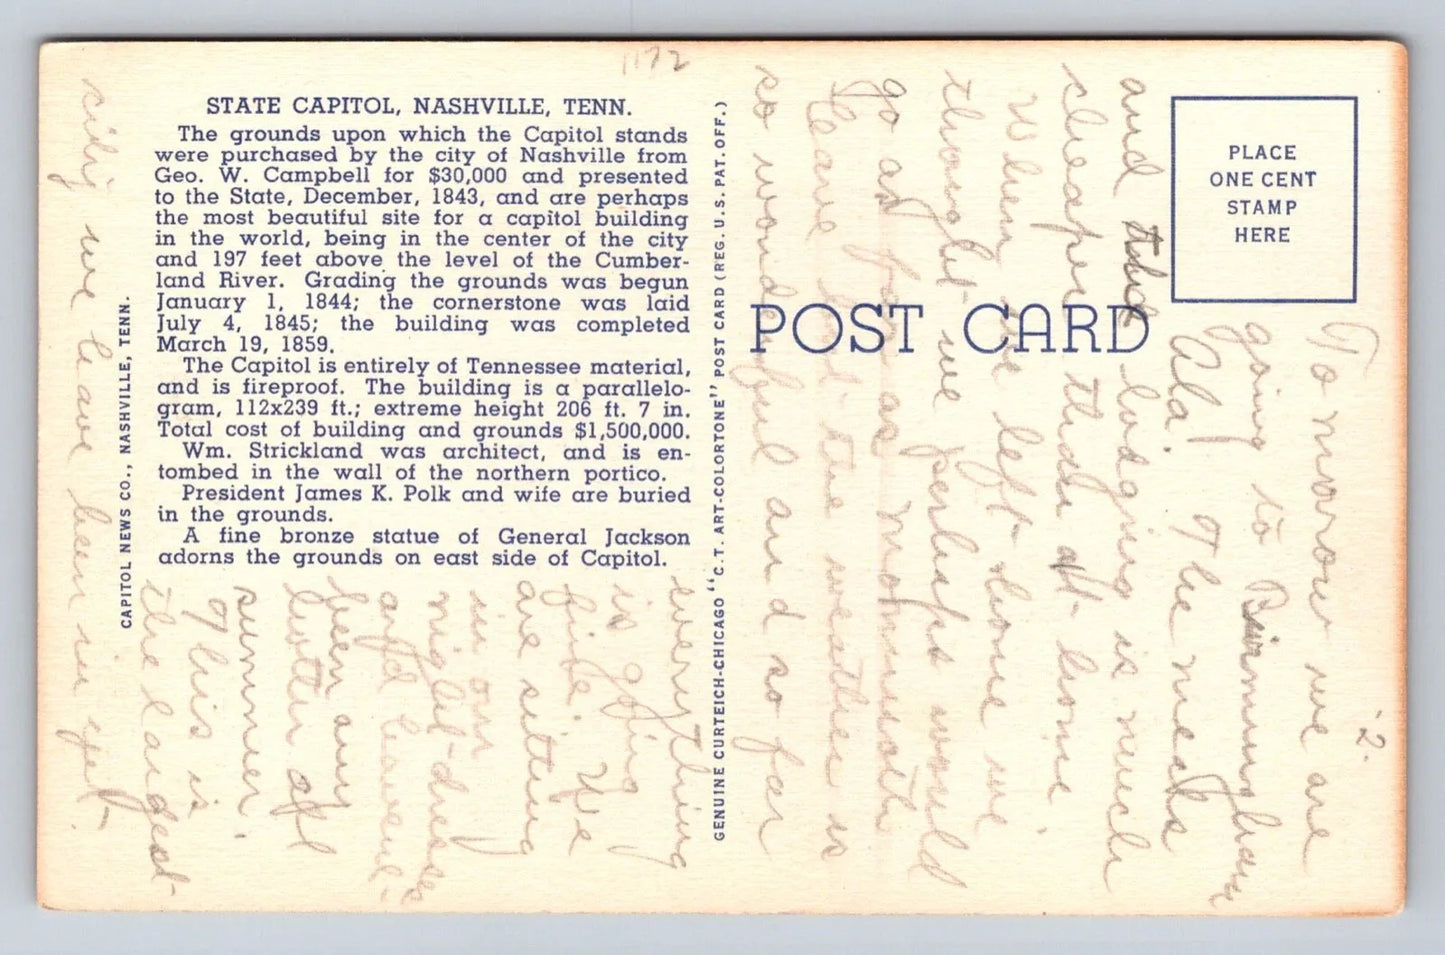 1172
STATE CAPITOL, NASHVILLE, TENN.
The grounds upon which the Capitol stands
were purchased by the city of Nashville from
Geo. W. Campbell for $30,000 and presented
to the State, December, 1843, and are perhaps
the most beautiful site for a capitol building
in the world, being in the center of the city
and 197 feet above the level of the Cumber-
land River. Grading the grounds was begun
January 1, 1844; the cornerstone was laid
July 4, 1845; the building was completed
March 19, 1859.
The Capitol is entirely of Tennessee material,
and is fireproof. The building is a parallelo-
gram, 112x239 ft.; extreme height 206 ft. 7 in.
Total cost of building and grounds $1,500,000.
Wm. Strickland was architect, and is en-
tombed in the wall of the northern portico.
President James K. Polk and wife are buried
in the grounds.
A fine bronze statue of General Jackson
adorns the grounds on east side of Capitol.
CAPITOL NEWS CO., NASHVILLE, TENN.
GENUINE CURTEICH-CHICAGO "C.T. ART-COLORTONE" POST CARD (REG. U.S. PAT. OFF.)
POST CARD
PLACE
ONE CENT
STAMP
HERE
2.
To morrow we are
going to Birmingham
Ala. The meals
and lodging is much
cheaper than at home
When we left home we
thought we perhaps would
go as far as Monmouth
Cave but the weather is
so wonderful and so far
everything
is going
fine. We
are siting
in our
night-dresses
and haven't
been any
hotter all
summer.
This is
the largest
city we have been in yet.